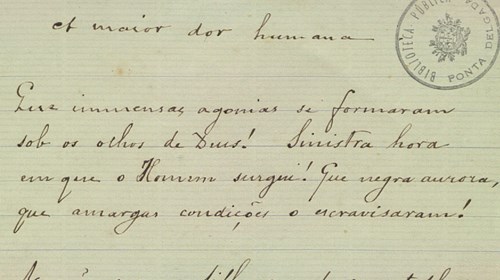 A maior dor humana
BIBLIOTECA PÚBLICA
PONTA DEL
Que immensas agonias se formaram
sob os olhos de Deus! Sinistra hora
em que o Homem surgiu! Que negra aurora,
que amargas condições o escravisaram!